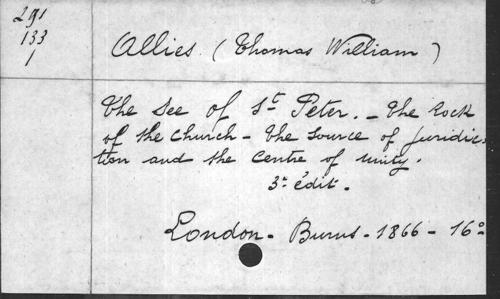 291
133
1
Allies. (Thomas William)
The See of St Peter. - The Rock
of the Church - The source of juridic-
tion and the centre of unity.
3e édit.
London - Burns - 1866 - 16o